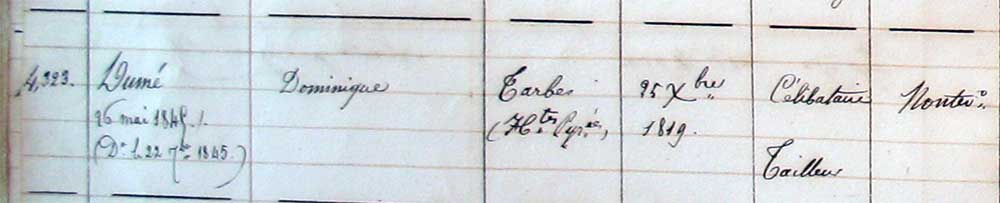 4,323. Dumé Dominique Tarbes 25 Xbre Célibataire Montevo.
26 mai 1845. (Htes Pyrées, 1819.
(Dr. le 22 7bre 1845.) Tailleur